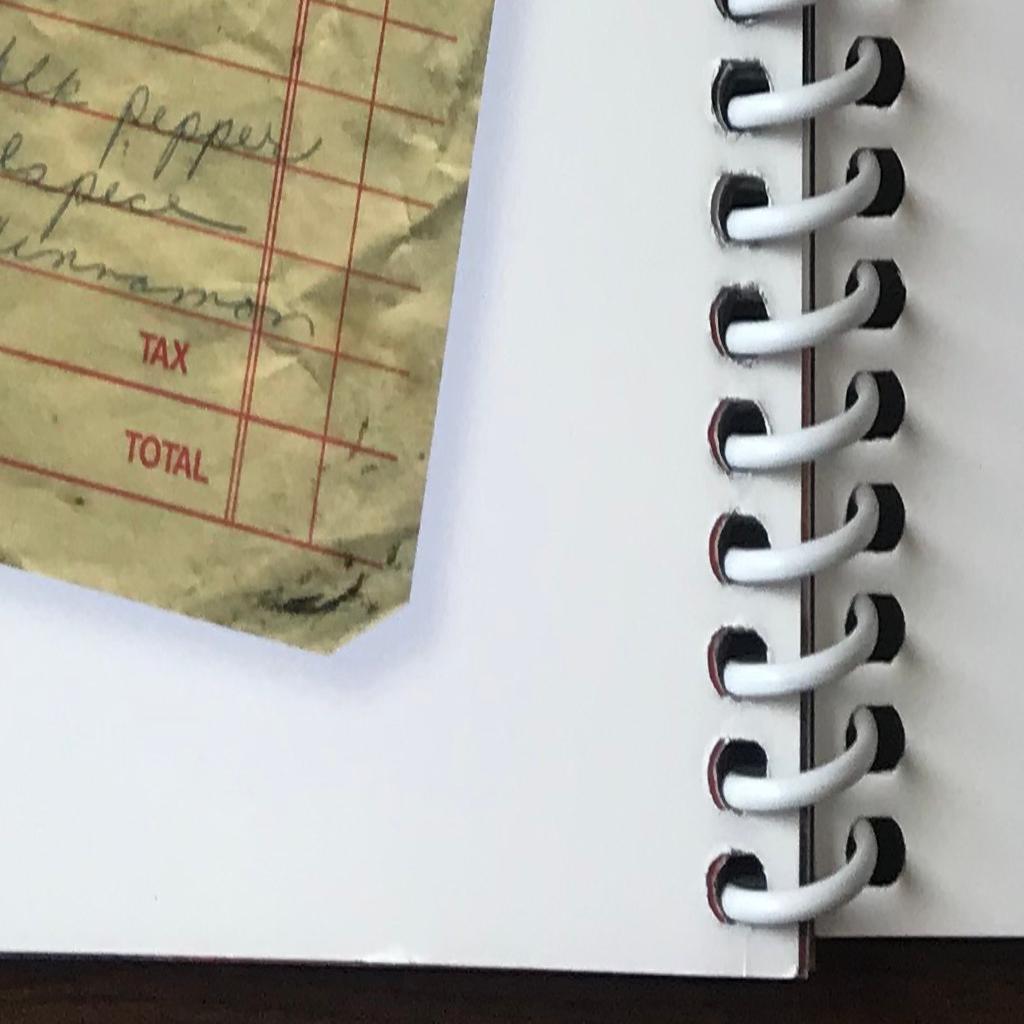 blk pepper
lspice
innamon
TAX
TOTAL